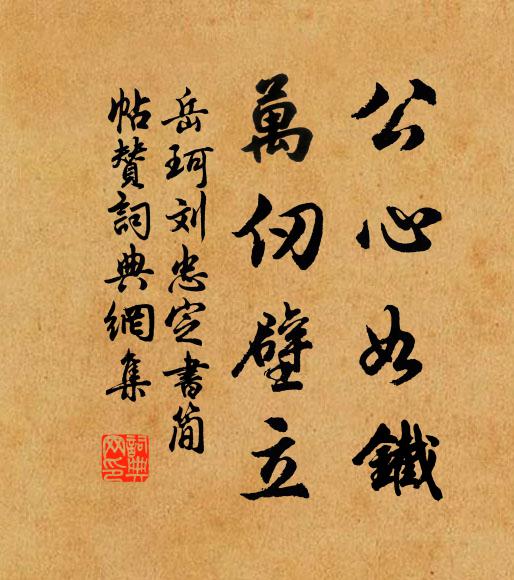 公心如鐵
萬仞壁立
岳珂刘忠定書简
帖賛詞典網集
詞典網印